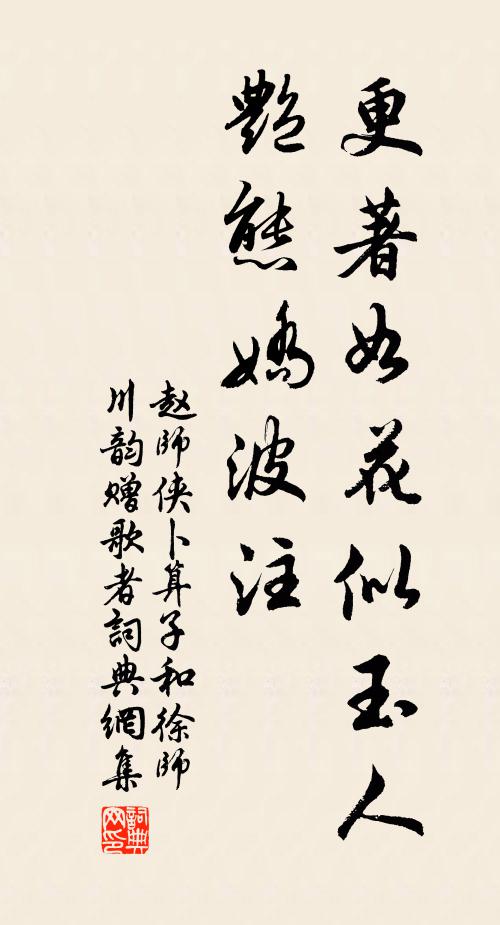 更著如花似玉人
艷態嬌波注
赵師侠卜算子和徐師
川韵贈歌者詞典網集
詞典网印